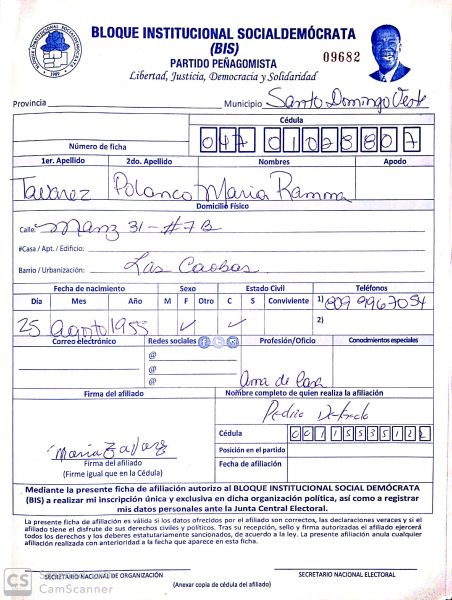 BLOQUE INSTITUCIONAL SOCIALDEMÓCRATA
(BIS)
PARTIDO PEÑAGOMISTA
09682
Libertad, Justicia, Democracia y Solidaridad
Provincia Municipio Santo Domingo Oeste
Cédula
Número de ficha 047 0102880 7
1er. Apellido 2do. Apellido Nombres Apodo
Tavarez Polanco Maria Ramona
Domicilio Físico
Calle: Manz 31 - #7B
#Casa / Apt. / Edificio:
Barrio / Urbanización: Las Caobas
Fecha de nacimiento Sexo Estado Civil Teléfonos
Día Mes Año M F Otro C S Conviviente 1) 809 9967054
25 Agosto 1955 ✓ ✓ 2)
Correo electrónico Redes sociales Profesión/Oficio Conocimientos especiales
@
@
@ Ama de Casa
Firma del afiliado Nombre completo de quien realiza la afiliación
Pedro
Cédula 001 1553512 2
Maria Tavarez Posición en el partido
Firma del afiliado Fecha de afiliación
(Firme igual que en la Cédula)
Mediante la presente ficha de afiliación autorizo al BLOQUE INSTITUCIONAL SOCIAL DEMÓCRATA
(BIS) a realizar mi inscripción única y exclusiva en dicha organización política, así como a registrar
mis datos personales ante la Junta Central Electoral.
La presente ficha de afiliación es válida si los datos ofrecidos por el afiliado son correctos, las declaraciones veraces y si el
afiliado tiene el disfrute de sus derechos civiles y políticos. Tras su recepción, sello y firma autorizadas el afiliado ejercerá
todos los derechos y los deberes estatutariamente sancionados, de acuerdo a la ley. La presente afiliación anula cualquier
afiliación realizada con anterioridad a la fecha que aparece en esta ficha.
SECRETARIO NACIONAL DE ORGANIZACIÓN SECRETARIO NACIONAL ELECTORAL
(Anexar copia de cédula del afiliado)
CS CamScanner